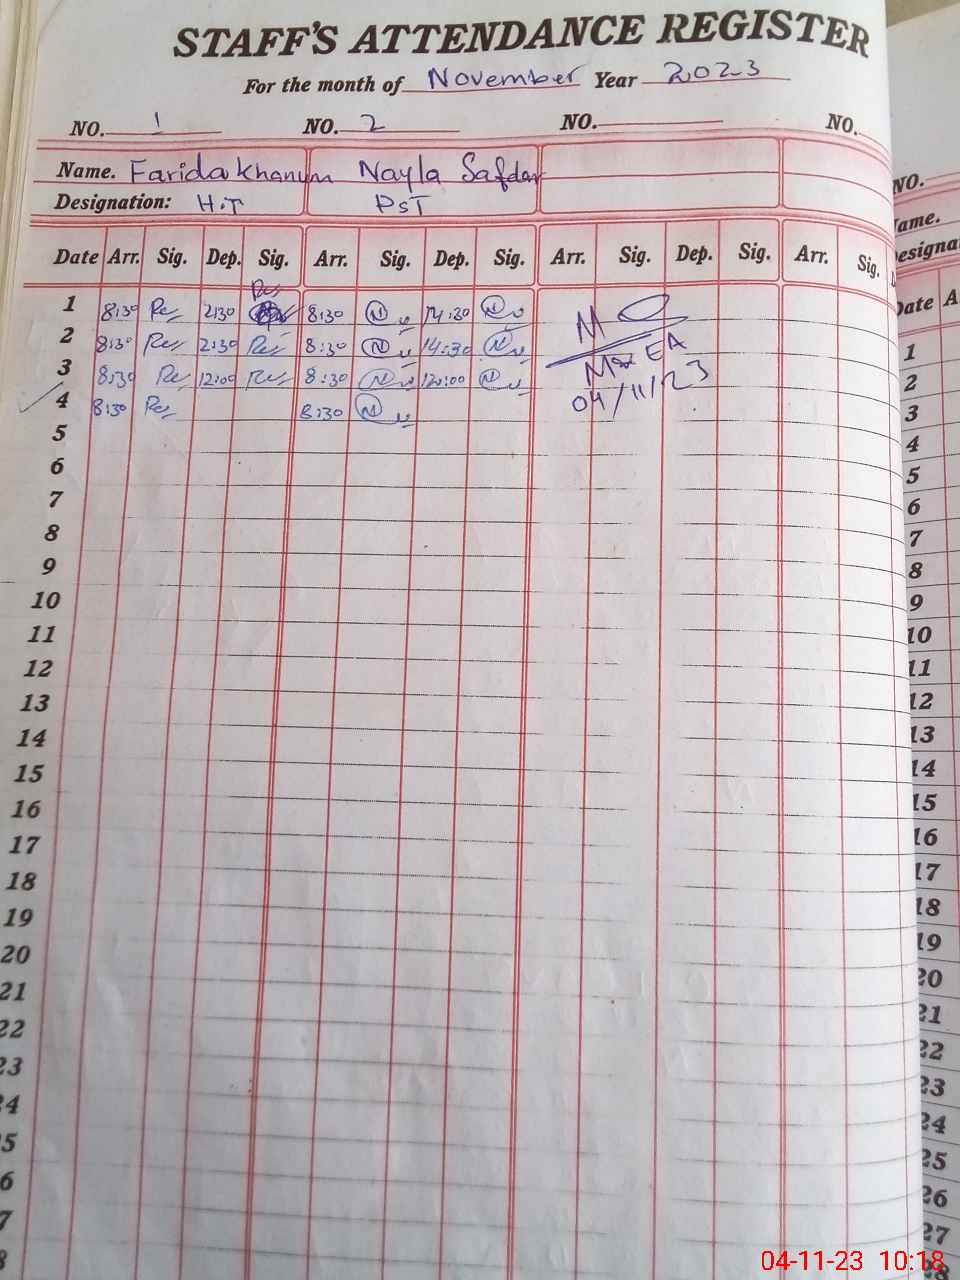 STAFF'S ATTENDANCE REGISTER
For the month of November Year 2023
NO. 1 NO. 2 NO. NO.
Name. Farida Khanum Nayla Safdar
Designation: H.T PST
Date Arr. Sig. Dep. Sig. Arr. Sig. Dep. Sig. Arr. Sig. Dep. Sig. Arr. Sig.
1 8:30 2:30 8:30 14:30
2 8:30 2:30 8:30 14:30
3 8:30 12:00 8:30 12:00
4 8:30 8:30
MEA
04/11/23
5
6
7
8
9
10
11
12
13
14
15
16
17
18
19
20
21
22
23
24
5
6
7
8
NO.
ame.
esigna
Date A
1
2
3
4
5
6
7
8
9
10
11
12
13
14
15
16
17
18
19
20
21
22
23
24
25
26
27
28
04-11-23 10:18